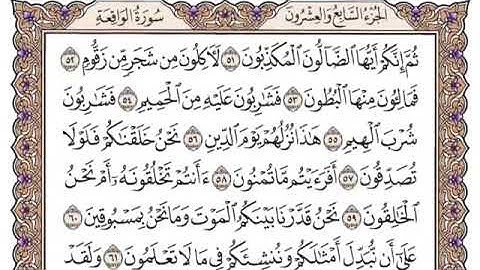 الجزء السابع والعشرون
سورة الواقعة
ثُمَّ إِنَّكُمْ أَيُّهَا ٱلضَّآلُّونَ ٱلْمُكَذِّبُونَ ٥١ لَأَكِلُونَ مِن شَجَرٍ مِّن زَقُّومٍ ٥٢
فَمَالِـُٔونَ مِنْهَا ٱلْبُطُونَ ٥٣ فَشَٰرِبُونَ عَلَيْهِ مِنَ ٱلْحَمِيمِ ٥٤ فَشَٰرِبُونَ
شُرْبَ ٱلْهِيمِ ٥٥ هَٰذَا نُزُلُهُمْ يَوْمَ ٱلدِّينِ ٥٦ نَحْنُ خَلَقْنَٰكُمْ فَلَوْلَا
تُصَدِّقُونَ ٥٧ أَفَرَءَيْتُم مَّا تُمْنُونَ ٥٨ ءَأَنتُمْ تَخْلُقُونَهُۥٓ أَمْ نَحْنُ
ٱلْخَٰلِقُونَ ٥٩ نَحْنُ قَدَّرْنَا بَيْنَكُمُ ٱلْمَوْتَ وَمَا نَحْنُ بِمَسْبُوقِينَ ٦٠
عَلَىٰٓ أَن نُّبَدِّلَ أَمْثَٰلَكُمْ وَنُنشِئَكُمْ فِى مَا لَا تَعْلَمُونَ ٦١ وَلَقَدْ